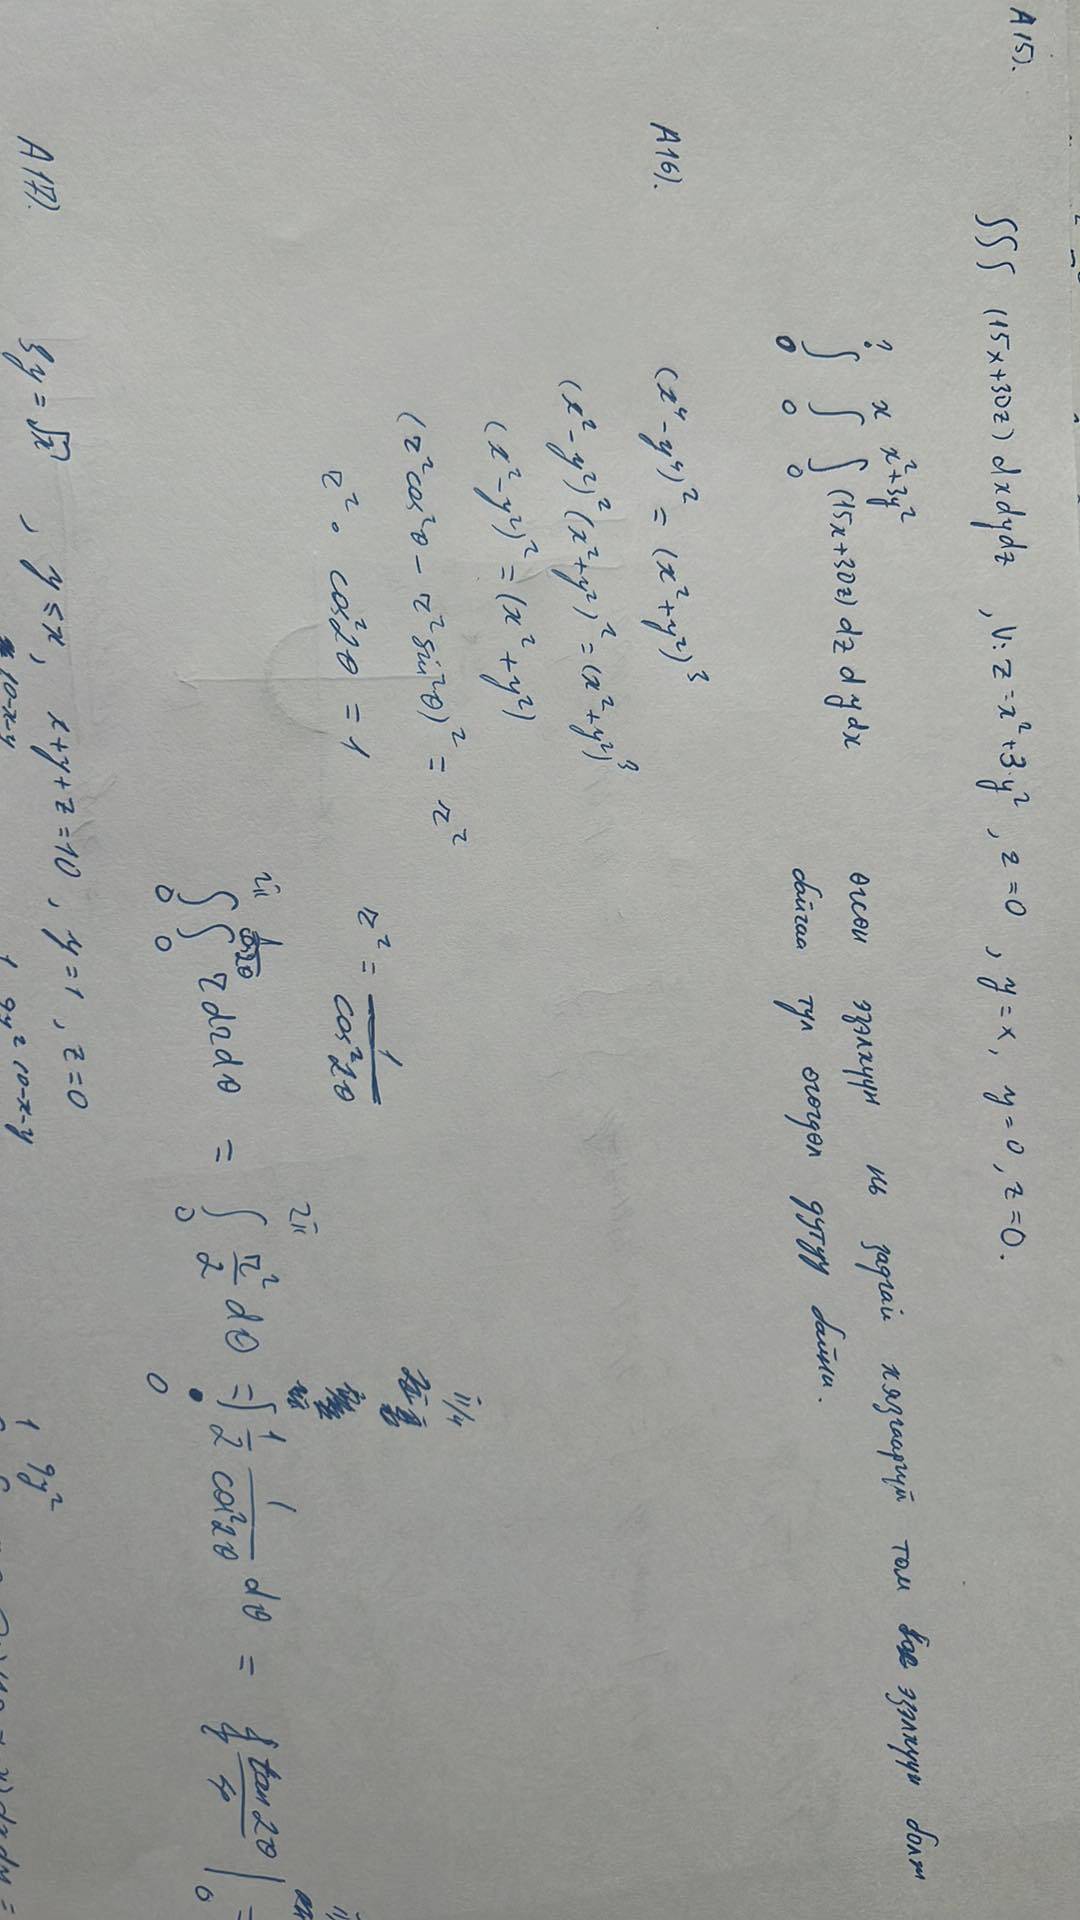 A15).
∫∫∫ (15x+30z) dxdydz , V: z=x²+3·y² , z=0 , y=x, y=0, z=0.
∫₀^? ∫₀^x ∫₀^(x²+3y²) (15x+30z) dz dy dx
өгсөн эзэлхүүн нь задгай хязгааргүй том эзэлхүүн болж
байгаа тул өгөгдөл дутуу байна.
A16).
(x⁴-y⁴)² = (x²+y²)³
(x²-y²)²(x²+y²)² = (x²+y²)³
(x²-y²)² = (x²+y²)
(r²cos²θ - r²sin²θ)² = r²
r² · cos²2θ = 1
r² = 1/cos²2θ
∫₀^2π ∫₀^(1/cos2θ) r dr dθ = ∫₀^2π r²/2 dθ = ∫₀^(π/4) 1/2 1/cos²2θ dθ = tan2θ/4 |₀ =
A17).
3y = √x , y ≤ x, x+y+z=10 , y=1 , z=0
10-x-y
1 9y² 10-x-y
1 9y²